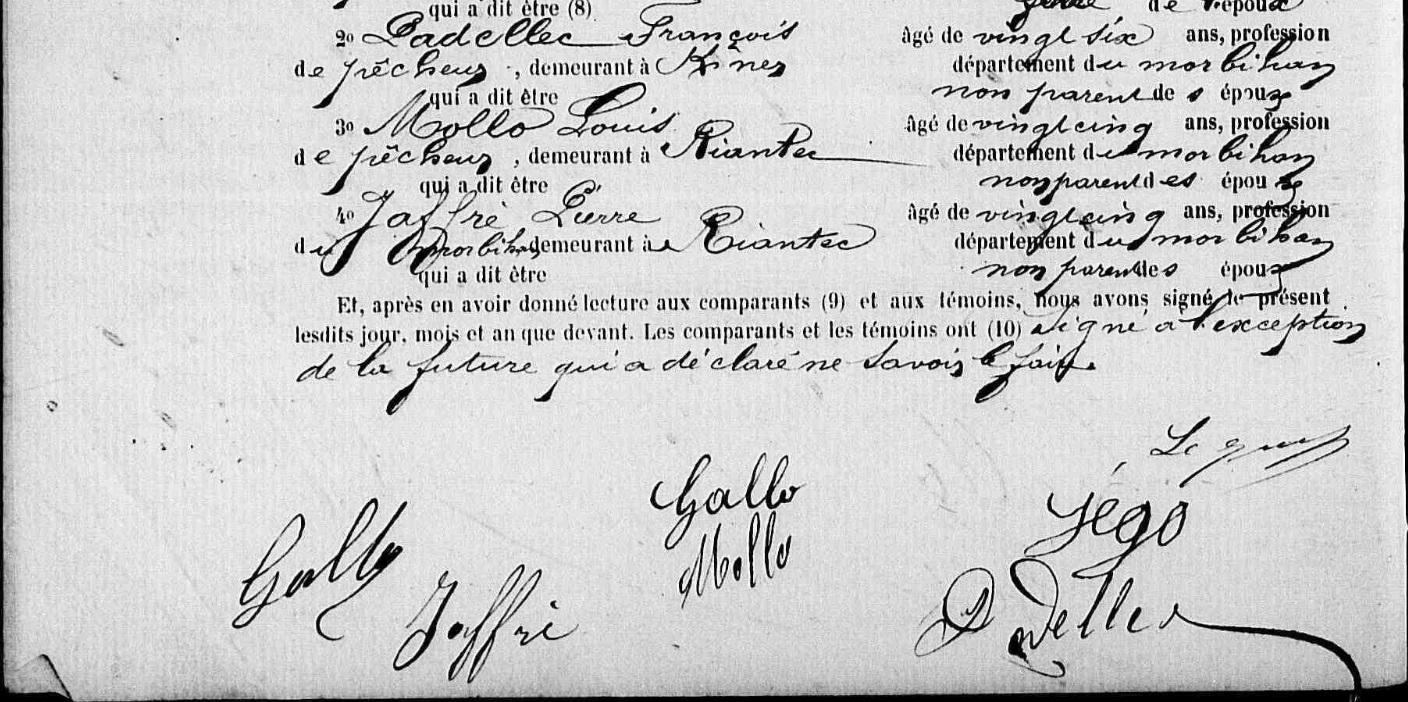 qui a dit être (8) de l'époux
2º Padellec François âgé de vingt six ans, profession
de pêcheur, demeurant à département du morbihan
qui a dit être non parent de s époux
3º Mollo Louis âgé de vingt cinq ans, profession
de pêcheur, demeurant à Riantec département du morbihan
qui a dit être non parent des époux
4º Jaffré Pierre âgé de vingt cinq ans, profession
du morbihan demeurant à Riantec département du morbihan
qui a dit être non parent des époux
Et, après en avoir donné lecture aux comparants (9) et aux témoins, nous avons signé le présent
lesdits jour, mois et an que devant. Les comparants et les témoins ont (10) signé à l'exception
de la future qui a déclaré ne savoir le faire.
Gallo Jégo
Gallo Mollo
Jaffré Padellec